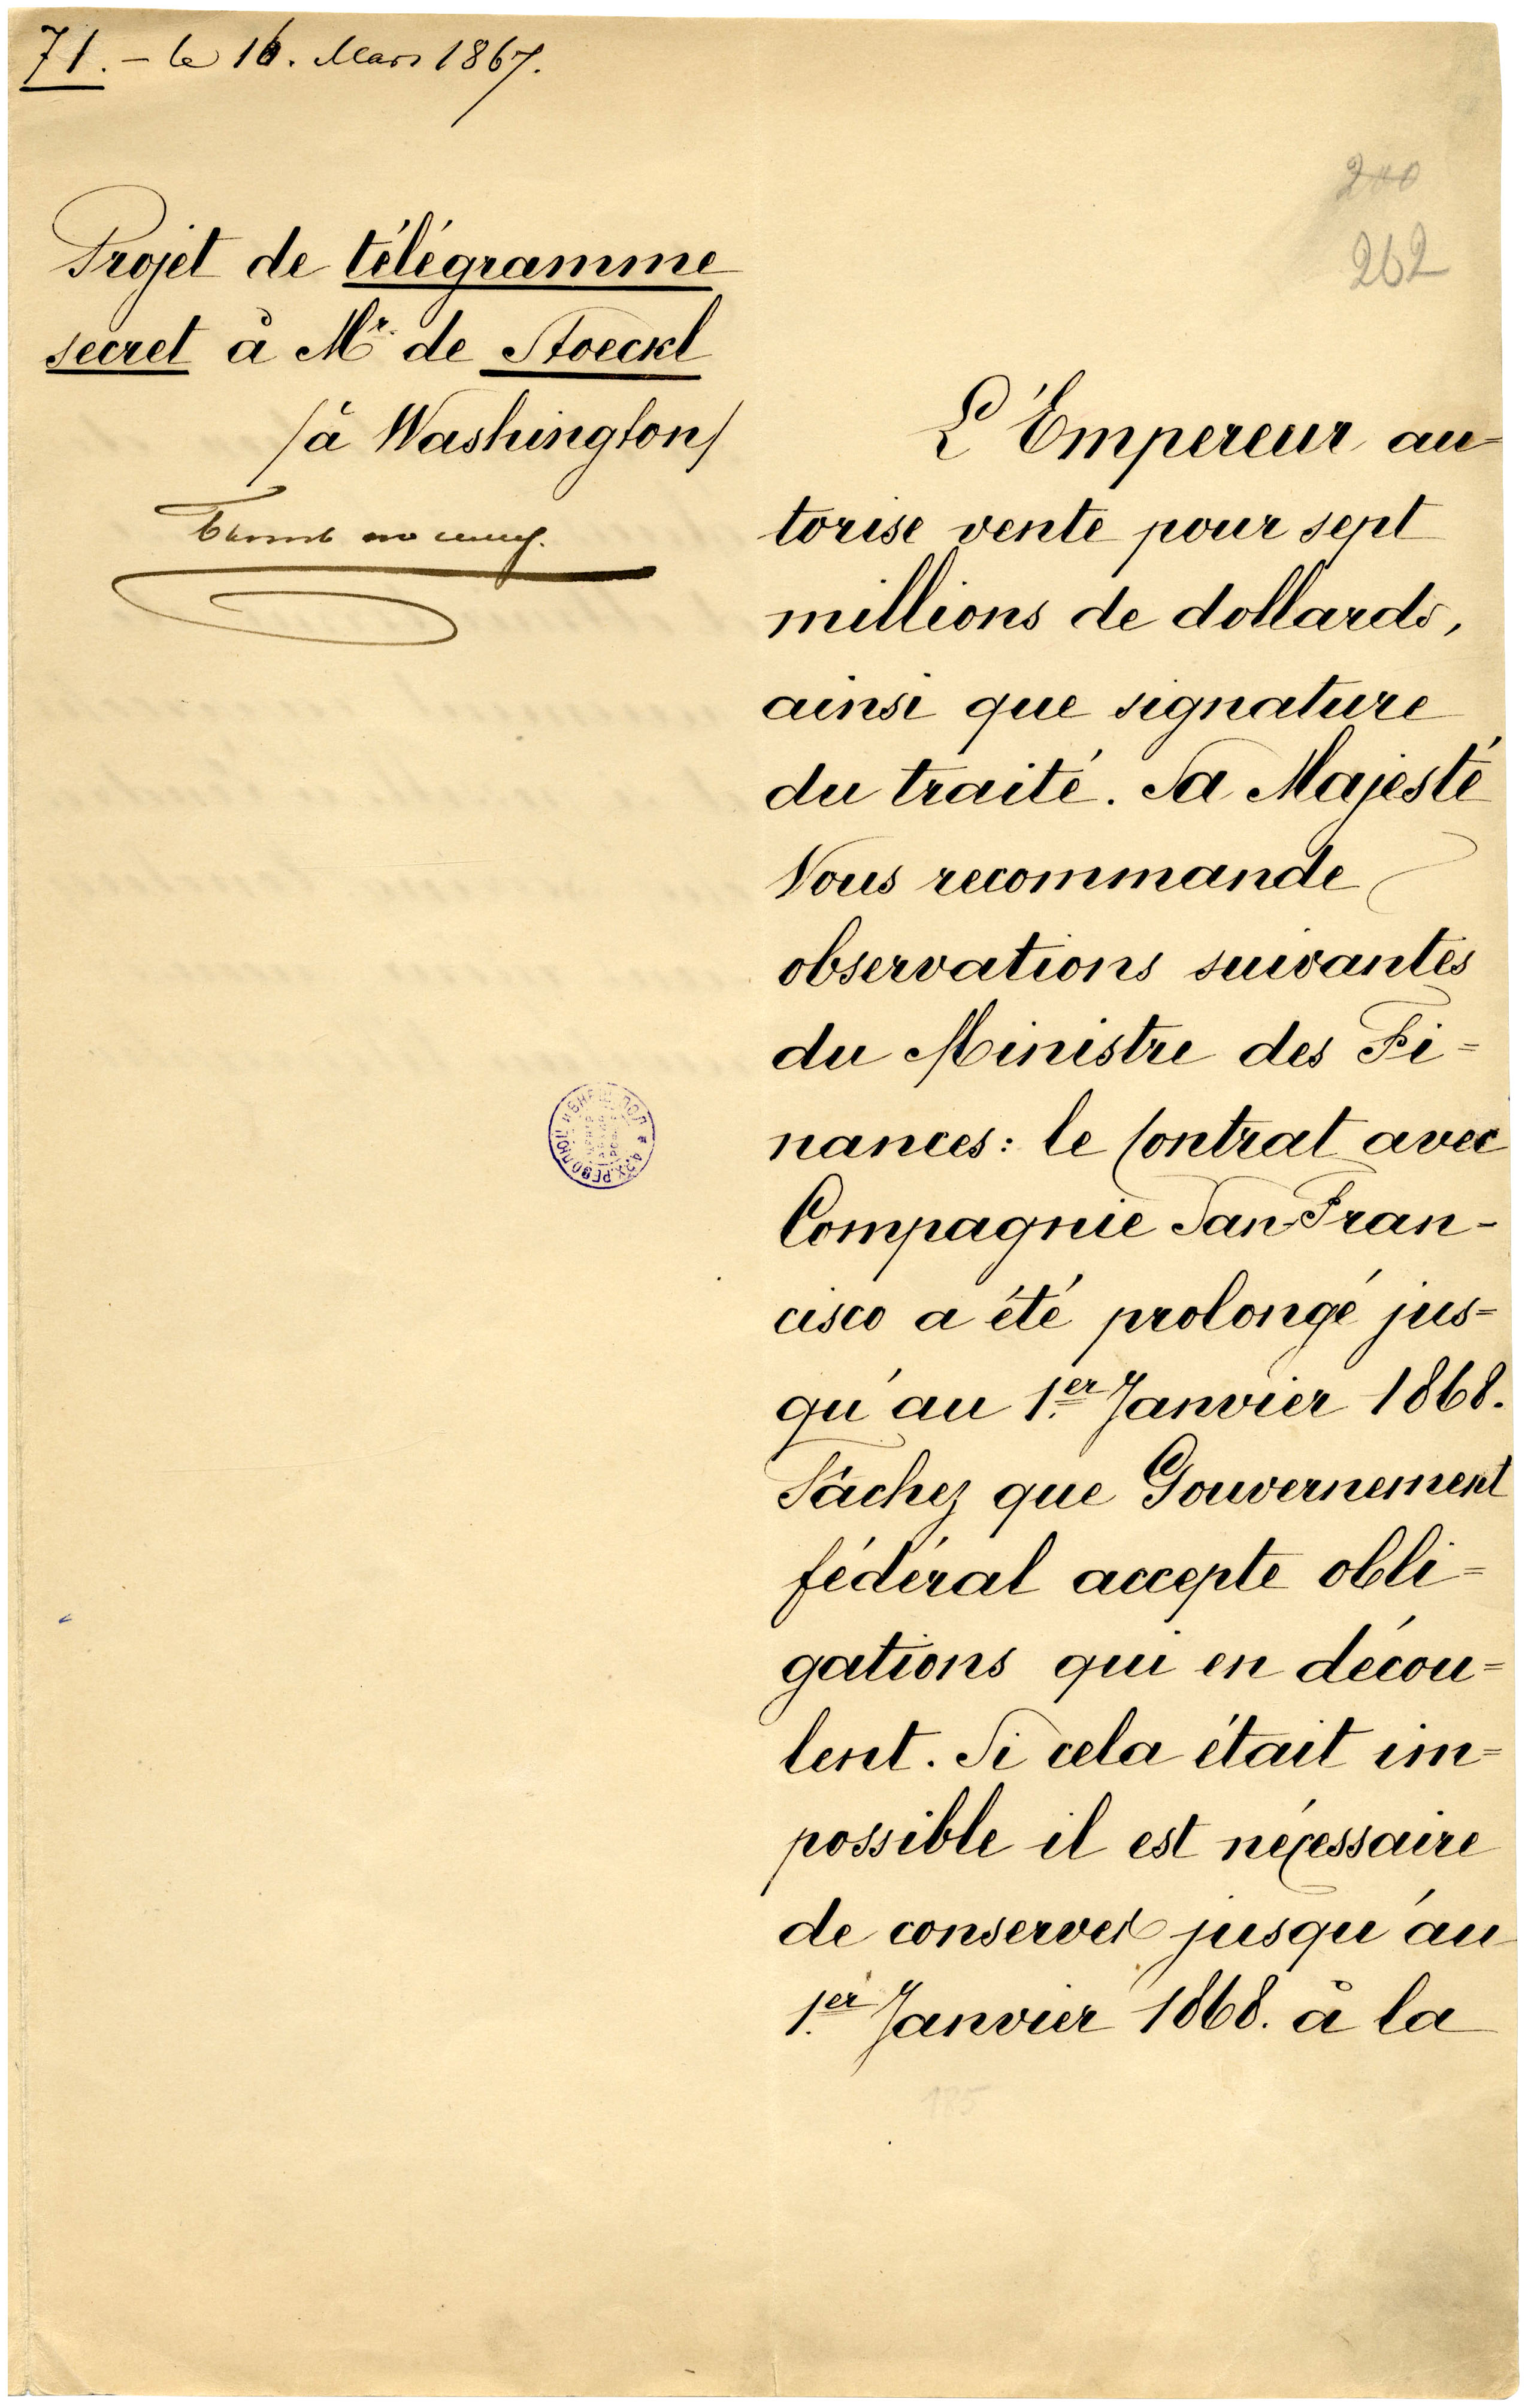 71. – le 16. Mars 1867.
200
262
Projet de télégramme
secret à Mr. de Stoeckl
/à Washington/
L'Empereur au=
torise vente pour sept
millions de dollards,
ainsi que signature
du traité. Sa Majesté
Vous recommande
observations suivantes
du Ministre des Fi=
nances: le Contrat avec
Compagnie San-Fran-
cisco a été prolongé jus=
qu'au 1.er Janvier 1868.
Tâchez que Gouvernement
fédéral accepte obli=
gations qui en décou=
lent. Si cela était im=
possible il est nécessaire
de conserver jusqu'au
1.er Janvier 1868. à la
185